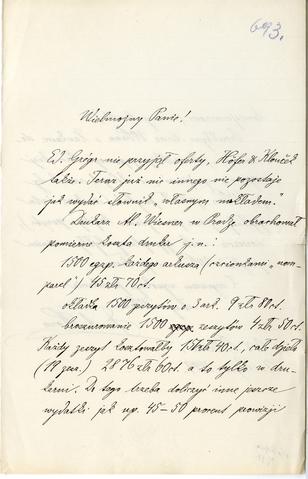 693.
Wielmożny Panie!
Ed. Grégr nie przyjął oferty, Höfer & Klouček
także. Teraz już nic innego nie pozostaje
jak wydać słownik „własnym nakładem."
Drukarz Al. Wiesner w Pradze obrachował
pomierne koszta druku j. n.:
1500 egzp. każdego arkusza (czcionkami „nom-
parel") 45 zł 70 ct.
okładka 1500 zeszytów o 3 ark. 9 zł 80 ct.
broszurowanie 1500 zeszytów 4 zł 50 ct.
Każdy zeszyt kosztowałby 151 zł 40 ct, całe dzieło
(19 zesz.) 2876 zł 60 ct. a to tylko w dru-
karni. Do tego trzeba doliczyć inne jeszcze
wydatki jak np. 45–50 procent prowizji